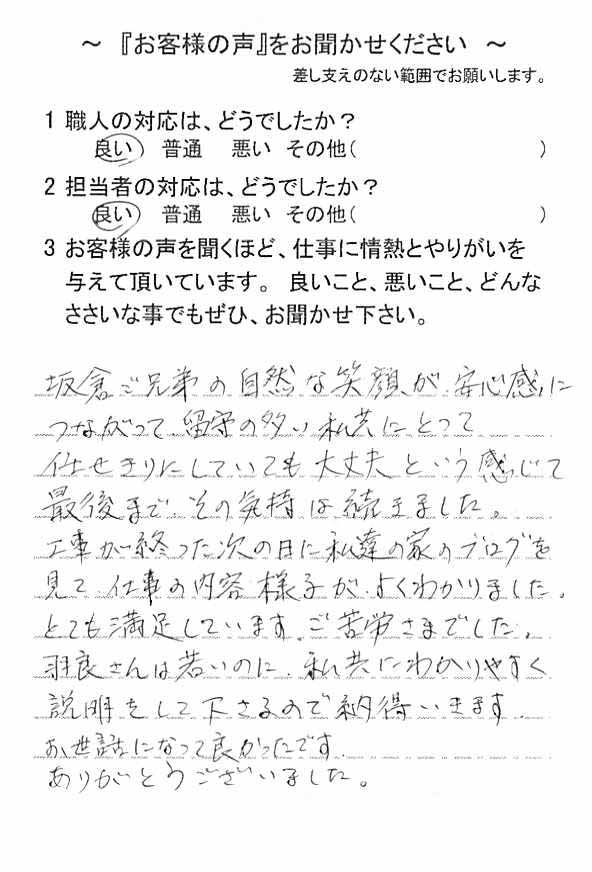 ～ 『お客様の声』をお聞かせください ～
差し支えのない範囲でお願いします。
1 職人の対応は、どうでしたか？
良い 普通 悪い その他( )
2 担当者の対応は、どうでしたか？
良い 普通 悪い その他( )
3 お客様の声を聞くほど、仕事に情熱とやりがいを
与えて頂いています。 良いこと、悪いこと、どんな
ささいな事でもぜひ、お聞かせ下さい。
坂倉ご兄弟の自然な笑顔が、安心感に
つながって、留守の多い私共にとって
任せきりにしていても大丈夫という感じで
最後まで、その気持は続きました。
工事が終った次の日に私達の家のブログを
見て、仕事の内容、様子が、よくわかりました。
とても満足しています。ご苦労さまでした。
羽良さんは若いのに、私共にわかりやすく
説明をして下さるので納得いきます。
お世話になって良かったです。
ありがとうございました。